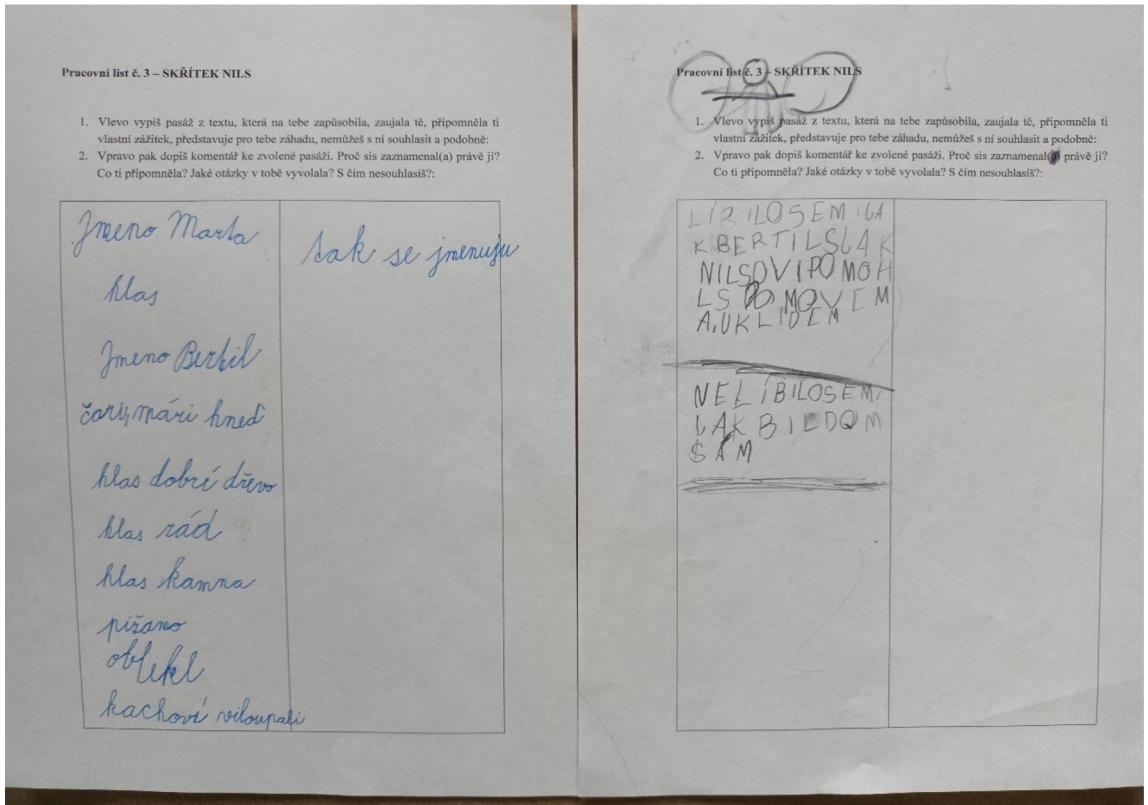 Pracovní list č. 3 – SKŘÍTEK NILS
1. Vlevo vypiš pasáž z textu, která na tebe zapůsobila, zaujala tě, připomněla ti
vlastní zážitek, představuje pro tebe záhadu, nemůžeš s ní souhlasit a podobně:
2. Vpravo pak dopiš komentář ke zvolené pasáži. Proč sis zaznamenal(a) právě ji?
Co ti připomněla? Jaké otázky v tobě vyvolala? S čím nesouhlasíš?:
Jmeno Marta
tak se jmenuju
hlas
Jmeno Bertil
čari, mári hneď
hlas dobré dřevo
hlas rád
hlas kamna
pižamo
oblekl
kachové viloupali
Pracovní list č. 3 – SKŘÍTEK NILS
1. Vlevo vypiš pasáž z textu, která na tebe zapůsobila, zaujala tě, připomněla ti
vlastní zážitek, představuje pro tebe záhadu, nemůžeš s ní souhlasit a podobně:
2. Vpravo pak dopiš komentář ke zvolené pasáži. Proč sis zaznamenal(a) právě ji?
Co ti připomněla? Jaké otázky v tobě vyvolala? S čím nesouhlasíš?:
LÍBILOSEMI
KBERTILS
NILSOVIPOMOH
LSDOMOVEM
AUKLIDEM
NELÍBILOSEMI
JAKBILDOM
SÁM